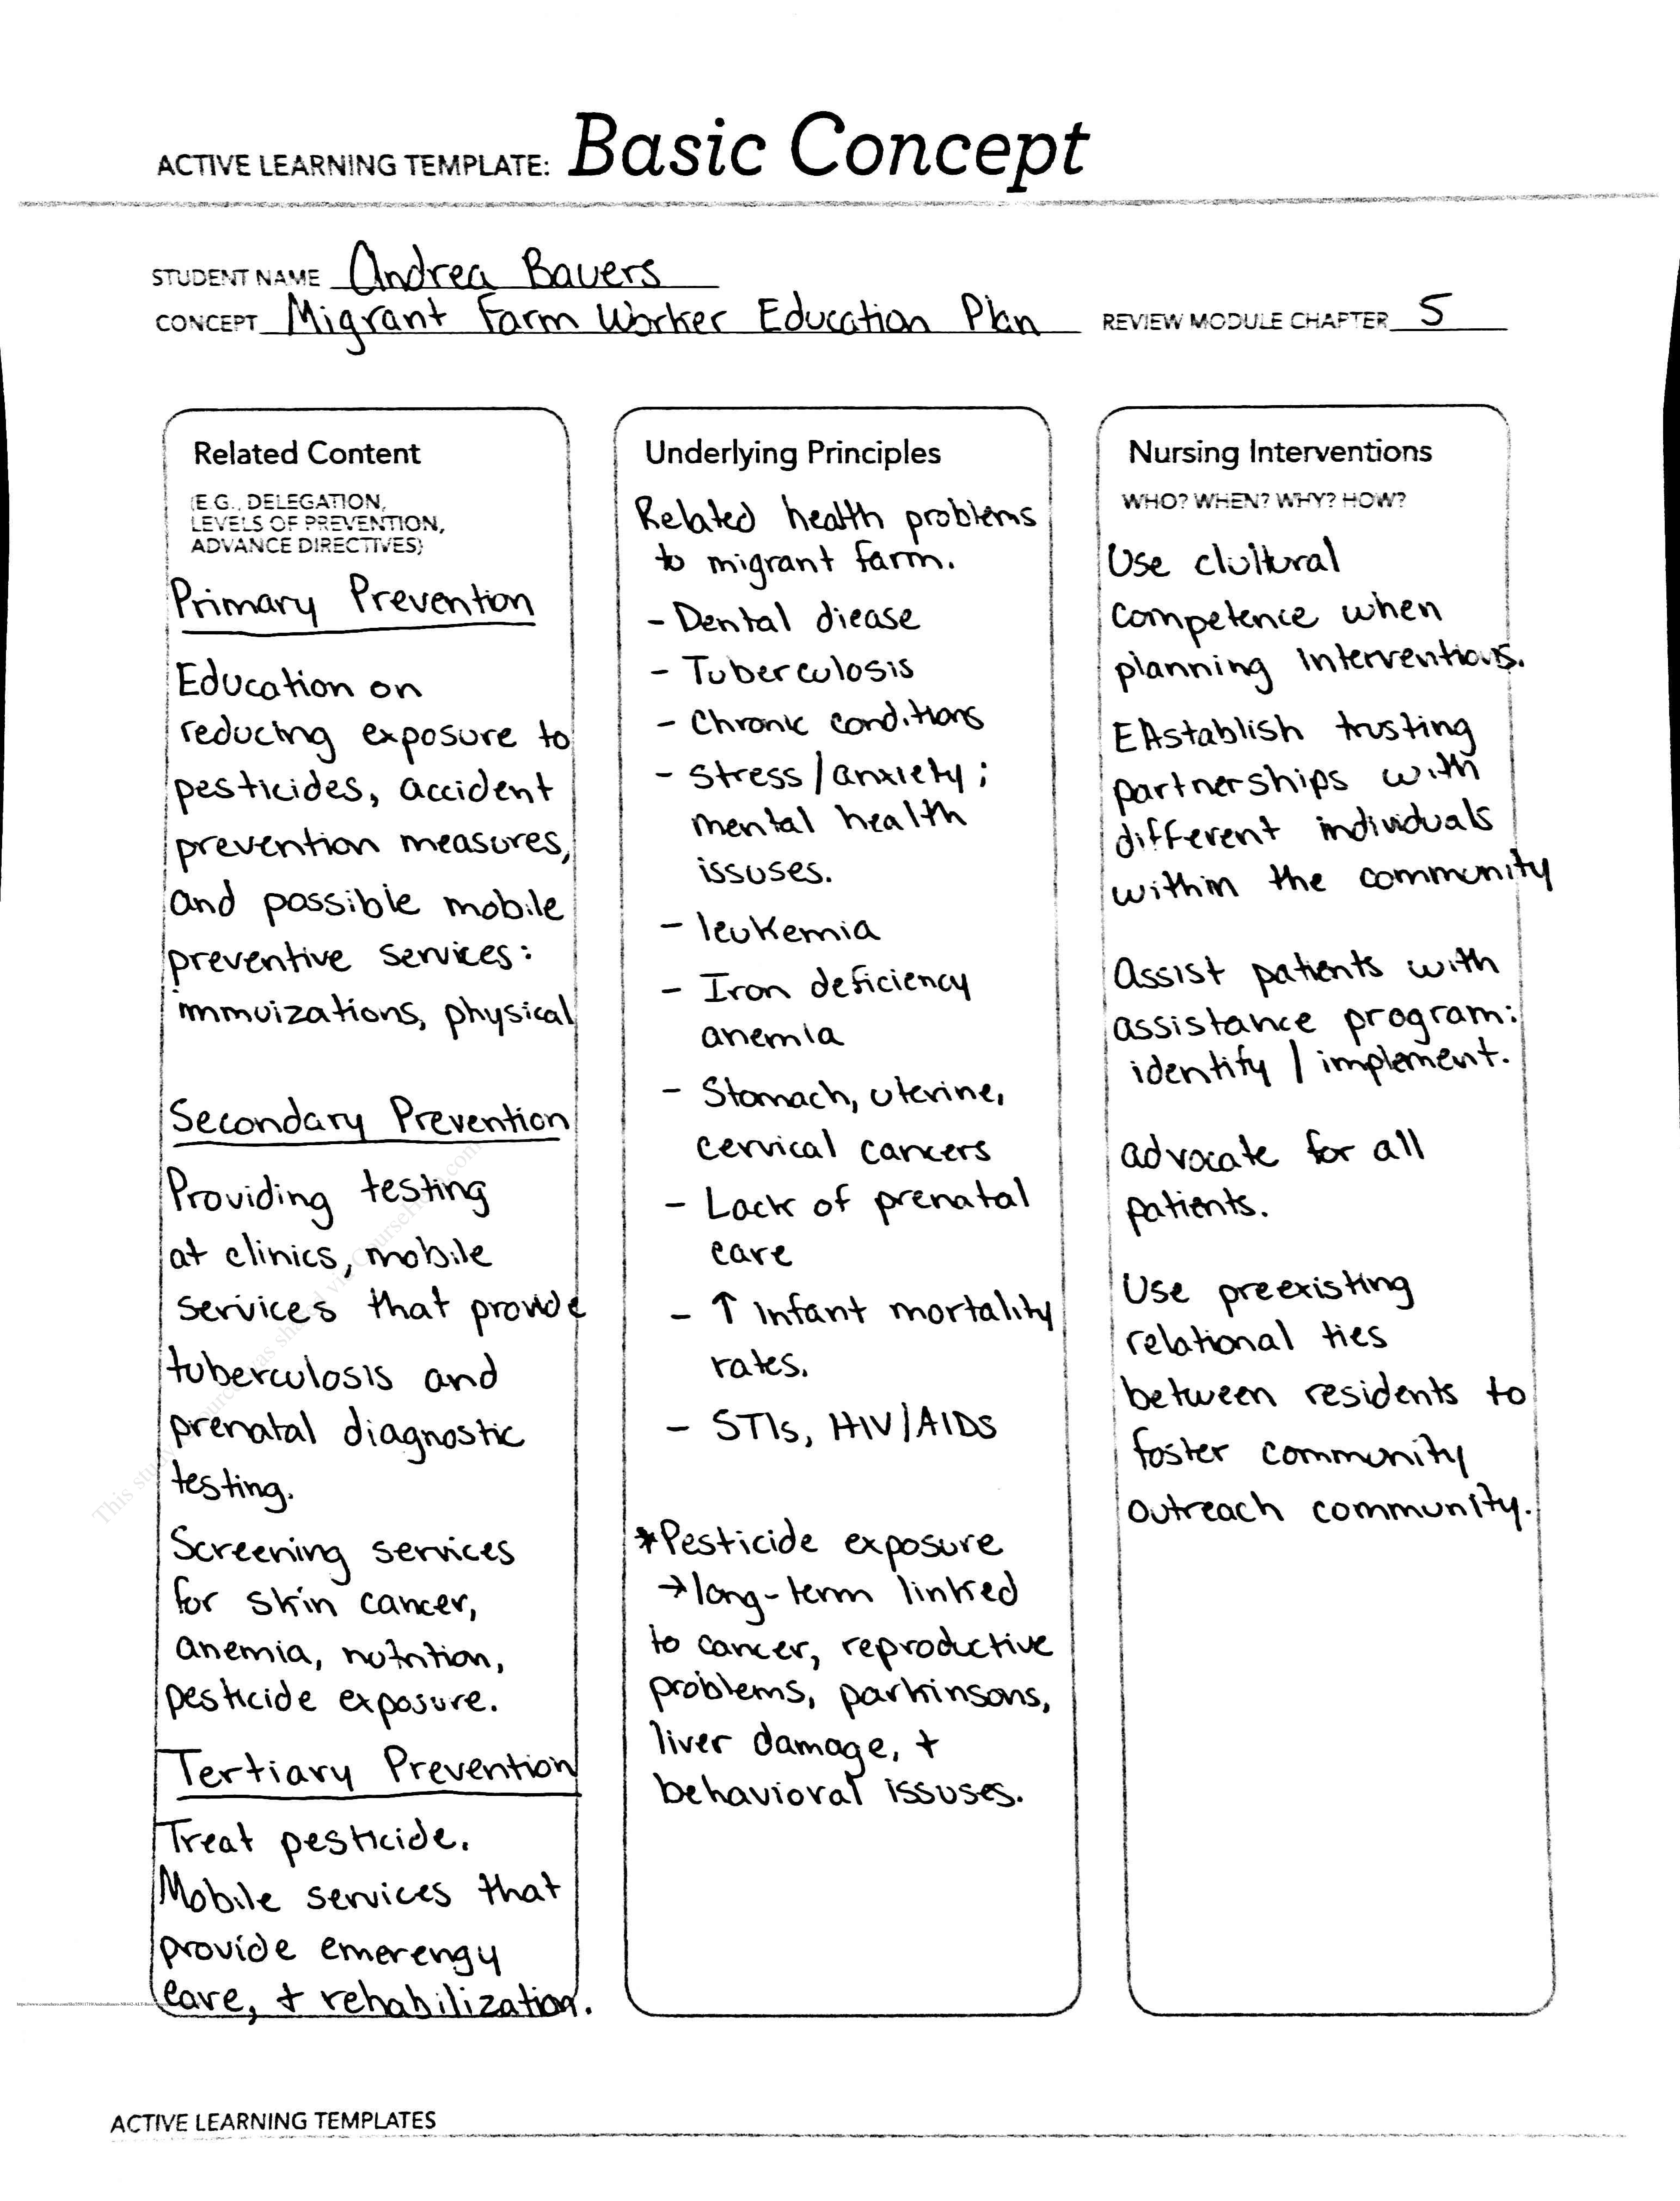 ACTIVE LEARNING TEMPLATE: Basic Concept
STUDENT NAME Andrea Bauers
CONCEPT Migrant Farm Worker Education Plan REVIEW MODULE CHAPTER 5
Related Content
(E.G., DELEGATION,
LEVELS OF PREVENTION,
ADVANCE DIRECTIVES)
Primary Prevention
Education on
reducing exposure to
pesticides, accident
prevention measures,
and possible mobile
preventive services:
immuizations, physical
Secondary Prevention
Providing testing
at clinics, mobile
services that provide
tuberculosis and
prenatal diagnostic
testing.
Screening services
for skin cancer,
anemia, nutrition,
pesticide exposure.
Tertiary Prevention
Treat pesticide.
Mobile services that
provide emerengy
care, + rehabilization.
Underlying Principles
Related health problems
to migrant farm.
- Dental diease
- Tuberculosis
- Chronic conditions
- Stress/anxiety;
mental health
issuses.
- leukemia
- Iron deficiency
anemia
- Stomach, uterine,
cervical cancers
- Lack of prenatal
care
- ↑ infant mortality
rates.
- STIs, HIV/AIDS
*Pesticide exposure
→ long-term linked
to cancer, reproductive
problems, parkinsons,
liver damage, +
behavioral issuses.
Nursing Interventions
WHO? WHEN? WHY? HOW?
Use clultural
competence when
planning interventions.
EAstablish trusting
partnerships with
different individuals
within the community
Assist patients with
assistance program:
identify / implement.
advocate for all
patients.
Use preexisting
relational ties
between residents to
foster community
outreach community.
ACTIVE LEARNING TEMPLATES